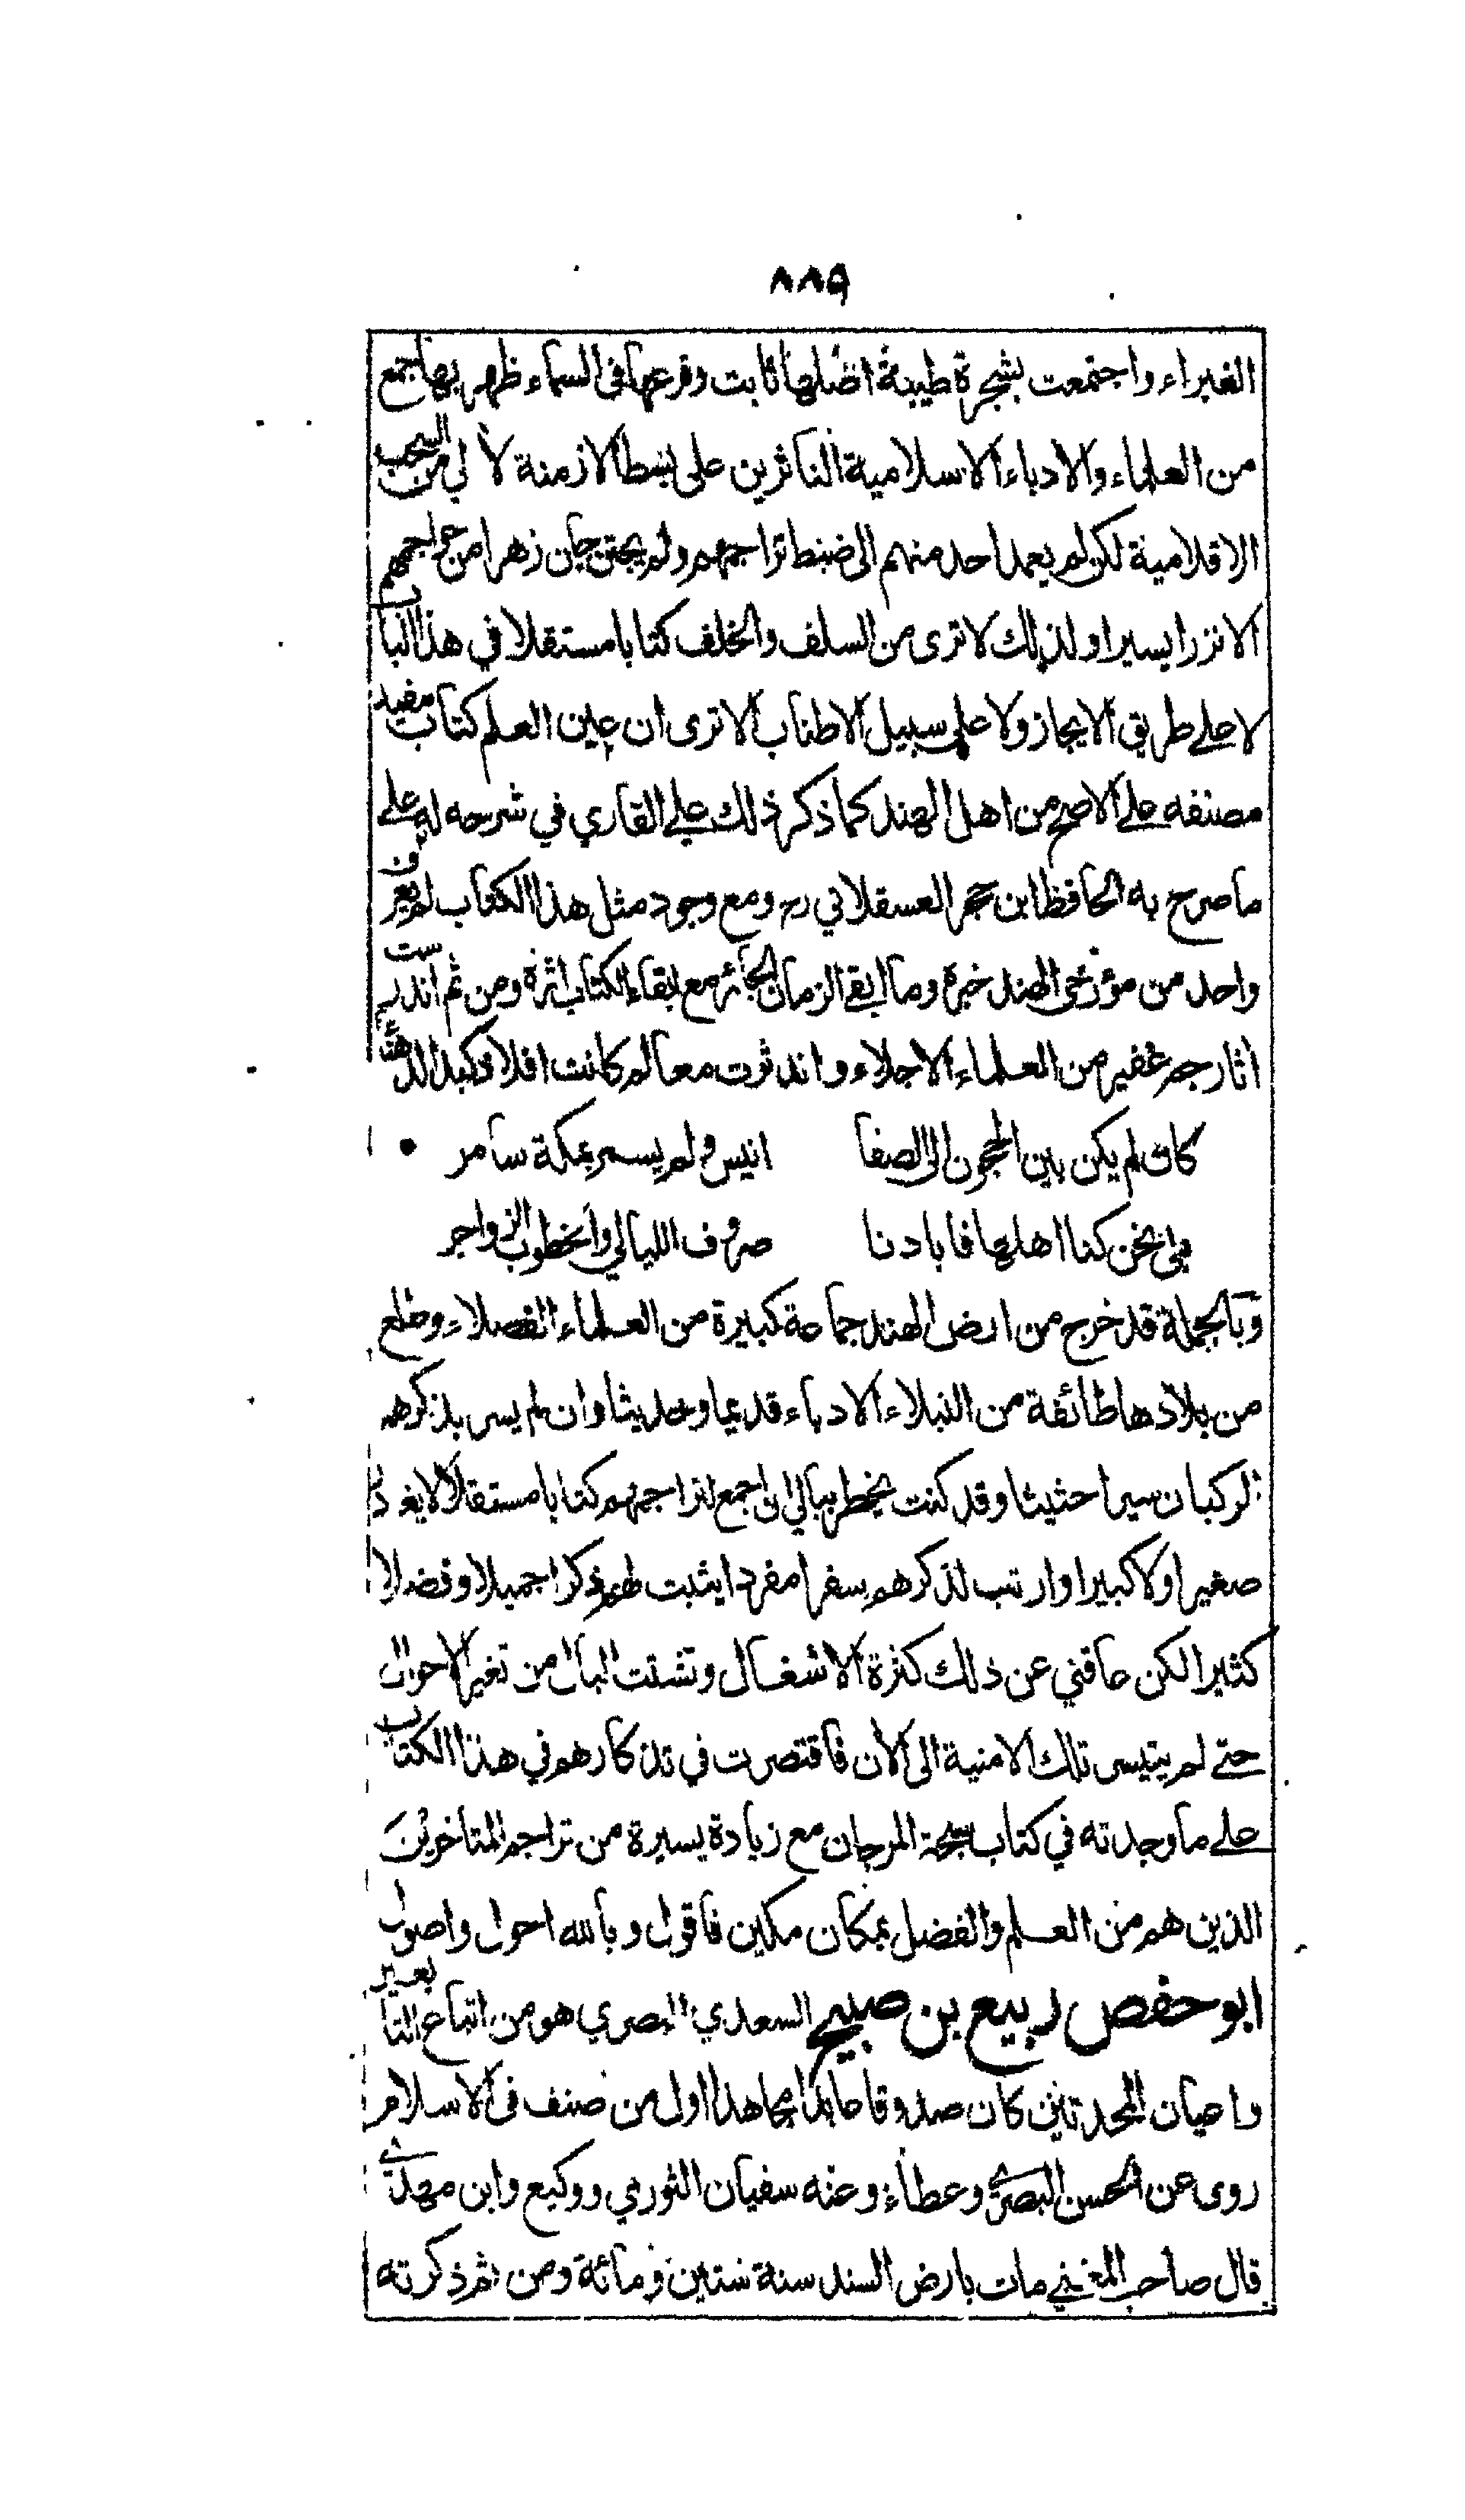 ٨٨٩
الغبراء واجتمعت بشجرة طيبة اصلها ثابت وفرعها فى السماء ظهر بها جمع
من العلماء والادباء الاسلامية الناثرين على بسط الازمنة لآلي من السحب
الاقلامية لكن لم يعمد احد منهم الى ضبط تراجمهم ولم يجتن جان زهرا من حراجمهم
الا نزرا يسيرا ولذلك لا ترى من السلف والخلف كتابا مستقلا في هذا الباب
لا على طريق الايجاز ولا على سبيل الاطناب الا ترى ان عين العلم كتاب مفيد
مصنفه على الاصح من اهل الهند كما ذكر ذلك علي القاري في شرحه له على
ما صرح به الحافظ ابن حجر العسقلاني رح ومع وجود مثل هذا الكتاب لم يعرف
واحد من مؤرخى الهند خبره وما ابقى الزمان الجائر مع بقاء الكتاب اثره ومن ثم اندرست
اثار جم غفير من العلماء الاجلاء واندثرت معالم كانت افلاذ كبد الدهناء
كان لم يكن بين الحجون الى الصفا انيس ولم يسمر بمكة سامر
بلى نحن كنا اهلها فابادنا صروف الليالي والخطوب الزواجر
وبالجملة قد خرج من ارض الهند جماعة كبيرة من العلماء الفضلاء وطلع
من بلادها طائفة من النبلاء الادباء قديما وحديثا وان لم يسر بذكرهم
الركبان سيرا حثيثا وقد كنت يخطر ببالي ان اجمع لتراجمهم كتابا مستقلا لا يغادر
صغيرا ولا كبيرا وارتب لذكرهم سفرا مفردا يثبت لهم ذكرا جميلا وفضلا
كثيرا لكن عاقني عن ذلك كثرة الاشغال وتشتت البال من تغير الاحوال
حتى لم يتيسر تلك الامنية الى الآن فاقتصرت في تذكارهم في هذا الكتاب
على ما وجدته في كتاب سبحة المرجان مع زيادة يسيرة من تراجم المتأخرين
الذين هم من العلم والفضل بمكان مكين فاقول وبالله احول واصول
ابو حفص ربيع بن صبيح السعدي البصري هو من اتباع التابعين
واعيان المحدثين كان صدوقا عابدا مجاهدا اول من صنف فى الاسلام
روى عن الحسن البصري وعطاء وعنه سفيان الثوري ووكيع وابن مهدي
قال صاحب المغني مات بارض السند سنة ستين ومائة ومن ثم ذكرته